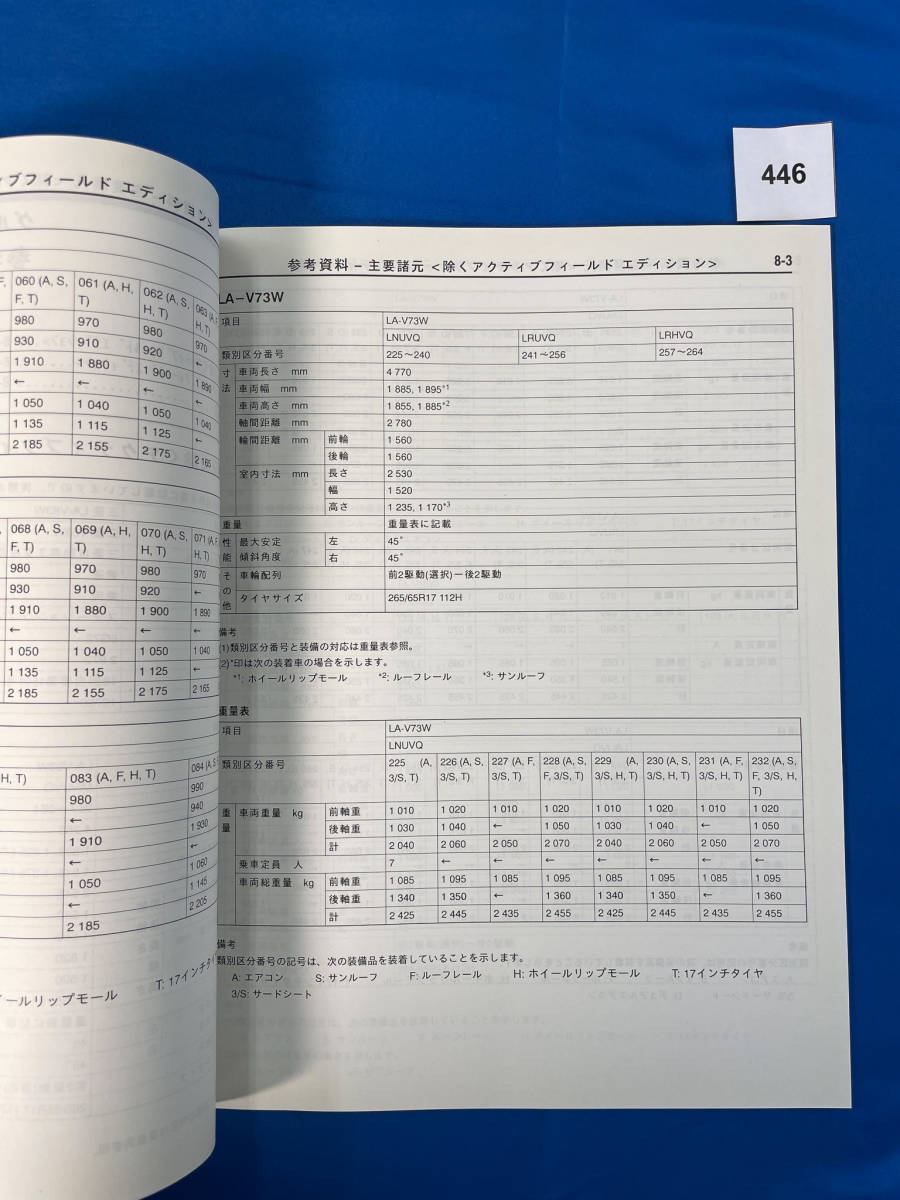 446
ブフィールド エディション>
060 (A, S, F, T) 061 (A, H, T) 062 (A, S, H, T)
980 970 980 970
930 910 920 ←
1 910 1 880 1 900 1 890
← ← ← ←
1 050 1 040 1 050 1 040
1 135 1 115 1 125 ←
2 185 2 155 2 175 2 165
068 (A, S, F, T) 069 (A, H, T) 070 (A, S, H, T)
980 970 980 970
930 910 920 ←
1 910 1 880 1 900 1 890
← ← ← ←
1 050 1 040 1 050 1 040
1 135 1 115 1 125 ←
2 185 2 155 2 175 2 165
H, T) 083 (A, F, H, T)
980 990
← 940
1 910 1 930
← ←
1 050 1 060
← 1 145
2 185 2 205
ールリップモール T: 17インチタイ
参考資料 – 主要諸元 <除くアクティブフィールド エディション> 8-3
LA–V73W
項目 LA-V73W
LNUVQ LRUVQ LRHVQ
類別区分番号 225～240 241～256 257～264
寸法 車両長さ mm 4 770
車両幅 mm 1 885, 1 895*1
車両高さ mm 1 855, 1 885*2
軸間距離 mm 2 780
輪間距離 mm 前輪 1 560
後輪 1 560
室内寸法 mm 長さ 2 530
幅 1 520
高さ 1 235, 1 170*3
重量 重量表に記載
性能 最大安定傾斜角度 左 45°
右 45°
その他 車輪配列 前2駆動(選択)－後2駆動
タイヤサイズ 265/65R17 112H
備考
(1)類別区分番号と装備の対応は重量表参照。
(2)*印は次の装着車の場合を示します。
*1: ホイールリップモール *2: ルーフレール *3: サンルーフ
重量表
項目 LA-V73W
LNUVQ
類別区分番号 225 (A, 3/S, T) 226 (A, S, 3/S, T) 227 (A, F, 3/S, T) 228 (A, S, F, 3/S, T) 229 (A, 3/S, H, T) 230 (A, S, 3/S, H, T) 231 (A, F, 3/S, H, T) 232 (A, S, F, 3/S, H, T)
重量 車両重量 kg 前軸重 1 010 1 020 1 010 1 020 1 010 1 020 1 010 1 020
後軸重 1 030 1 040 ← 1 050 1 030 1 040 ← 1 050
計 2 040 2 060 2 050 2 070 2 040 2 060 2 050 2 070
乗車定員 人 7 ← ← ← ← ← ← ←
車両総重量 kg 前軸重 1 085 1 095 1 085 1 095 1 085 1 095 1 085 1 095
後軸重 1 340 1 350 ← 1 360 1 340 1 350 ← 1 360
計 2 425 2 445 2 435 2 455 2 425 2 445 2 435 2 455
備考
類別区分番号の記号は、次の装備品を装着していることを示します。
A: エアコン S: サンルーフ F: ルーフレール H: ホイールリップモール T: 17インチタイヤ
3/S: サードシート